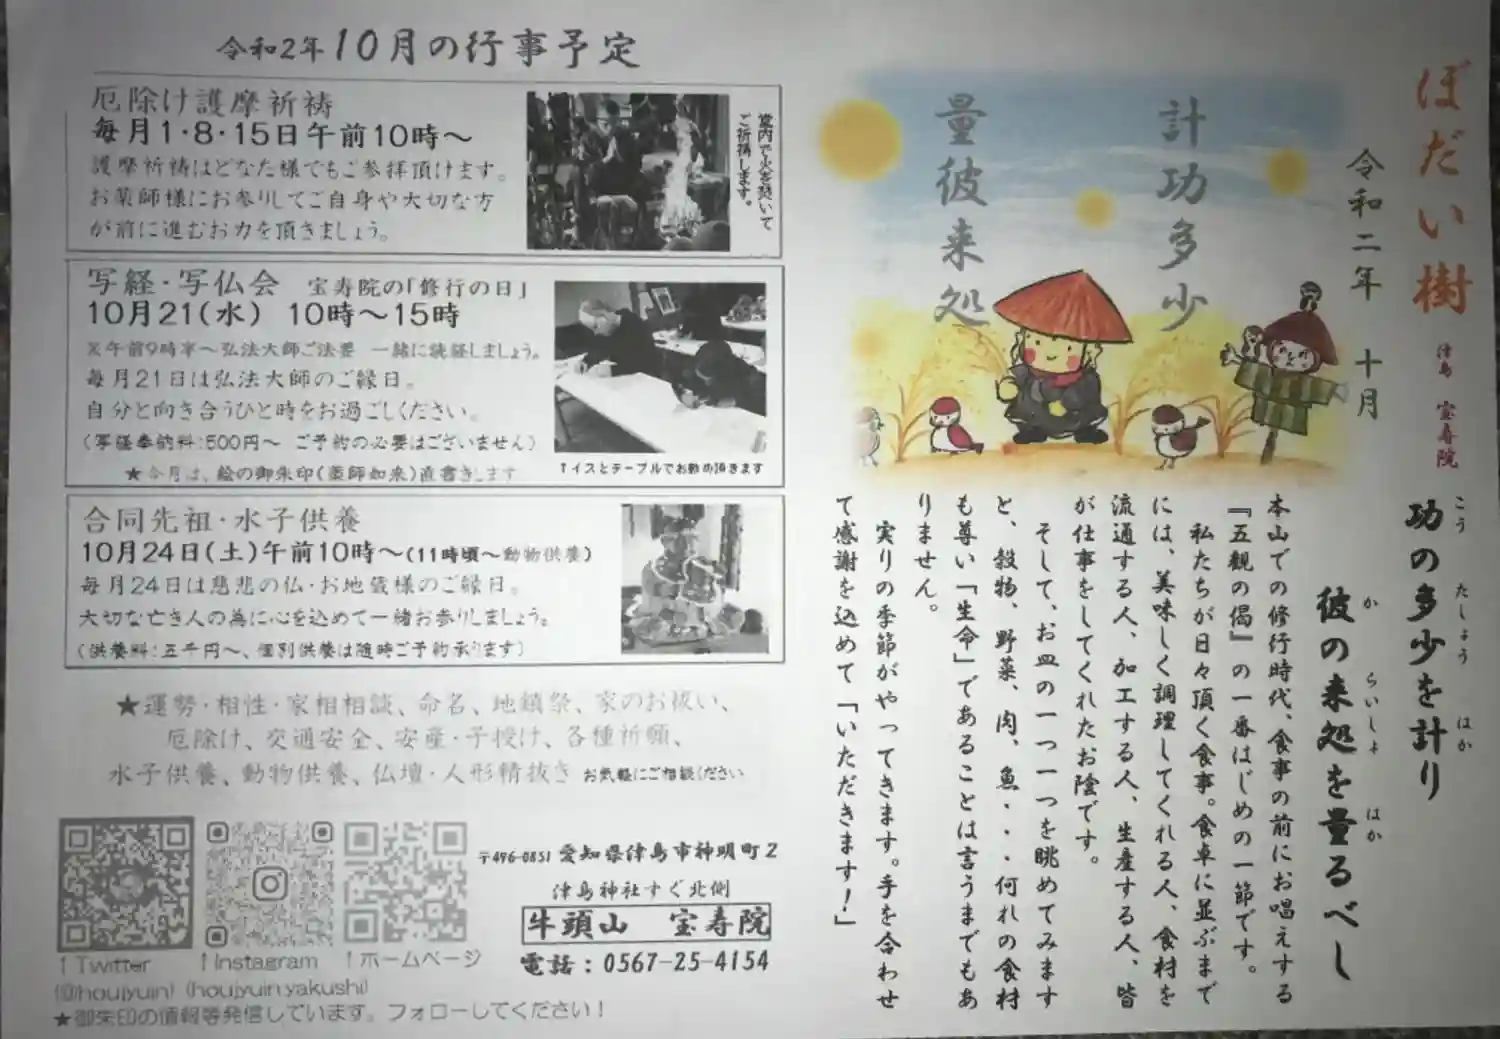 ぼだい樹
津島 宝寿院
令和二年 十月
計功多少
量彼来処
功の多少を計り
こう たしょう はか
彼の来処を量るべし
か らいしょ はか
本山での修行時代、食事の前にお唱えする
『五観の偈』の一番はじめの一節です。
私たちが日々頂く食事。食卓に並ぶまで
には、美味しく調理してくれる人、食材を
流通する人、加工する人、生産する人、皆
が仕事をしてくれたお陰です。
そして、お皿の一つ一つを眺めてみます
と、穀物、野菜、肉、魚・・・何れの食材
も尊い「生命」であることは言うまでもあ
りません。
実りの季節がやってきます。手を合わせ
て感謝を込めて「いただきます！」
令和2年10月の行事予定
厄除け護摩祈祷
毎月1・8・15日午前10時～
護摩祈祷はどなた様でもご参拝頂けます。
お薬師様にお参りしてご自身や大切な方
が前に進むお力を頂きましょう。
堂内で火を焚いて
ご祈祷します。
写経・写仏会 宝寿院の「修行の日」
10月21(水) 10時～15時
※午前9時半～弘法大師ご法要 一緒に読経しましょう。
毎月21日は弘法大師のご縁日。
自分と向き合うひと時をお過ごしください。
(写経奉納料:500円～ ご予約の必要はございません)
★今月は、絵の御朱印(薬師如来)直書きします
↑イスとテーブルでお勤め頂きます
合同先祖・水子供養
10月24日(土)午前10時～(11時頃～動物供養)
毎月24日は慈悲の仏・お地蔵様のご縁日。
大切な亡き人の為に心を込めて一緒お参りしましょう。
(供養料:五千円～、個別供養は随時ご予約承ります)
★運勢・相性・家相相談、命名、地鎮祭、家のお祓い、
厄除け、交通安全、安産・子授け、各種祈願、
水子供養、動物供養、仏壇・人形精抜き お気軽にご相談ください
↑Twitter
(@houjyuin)
↑Instagram
(houjyuin.yakushi)
↑ホームページ
★御朱印の情報等発信しています。フォローしてください！
〒496-0851 愛知県津島市神明町2
津島神社すぐ北側
牛頭山 宝寿院
電話：0567-25-4154